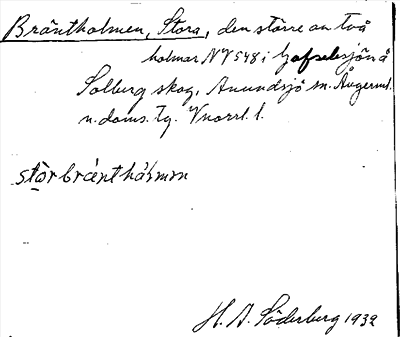 Bräntholmen, Stora, den större av två
holmar NV 548 i Gafselesjön å
Solberg skog, Anundsjö sn. Ångerml.
n. doms. tg. Vnorrl. l.
stòrbránthål̀mm
H. A. Söderberg 1932